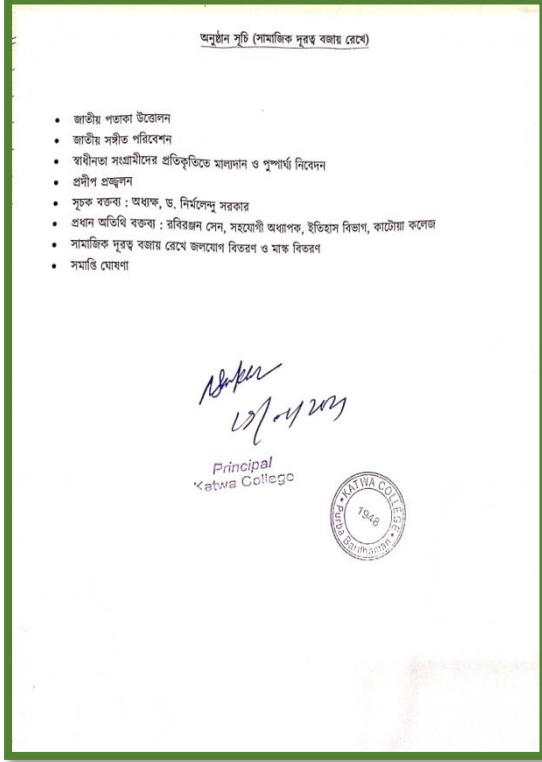 অনুষ্ঠান সূচি (সামাজিক দূরত্ব বজায় রেখে)
• জাতীয় পতাকা উত্তোলন
• জাতীয় সঙ্গীত পরিবেশন
• স্বাধীনতা সংগ্রামীদের প্রতিকৃতিতে মাল্যদান ও পুষ্পার্ঘ্য নিবেদন
• প্রদীপ প্রজ্জ্বলন
• সূচক বক্তব্য : অধ্যক্ষ, ড. নির্মলেন্দু সরকার
• প্রধান অতিথি বক্তব্য : রবিরঞ্জন সেন, সহযোগী অধ্যাপক, ইতিহাস বিভাগ, কাটোয়া কলেজ
• সামাজিক দূরত্ব বজায় রেখে জলযোগ বিতরণ ও মাস্ক বিতরণ
• সমাপ্তি ঘোষণা
Principal
Katwa College
KATWA COLLEGE
1948
Purba Bardhaman